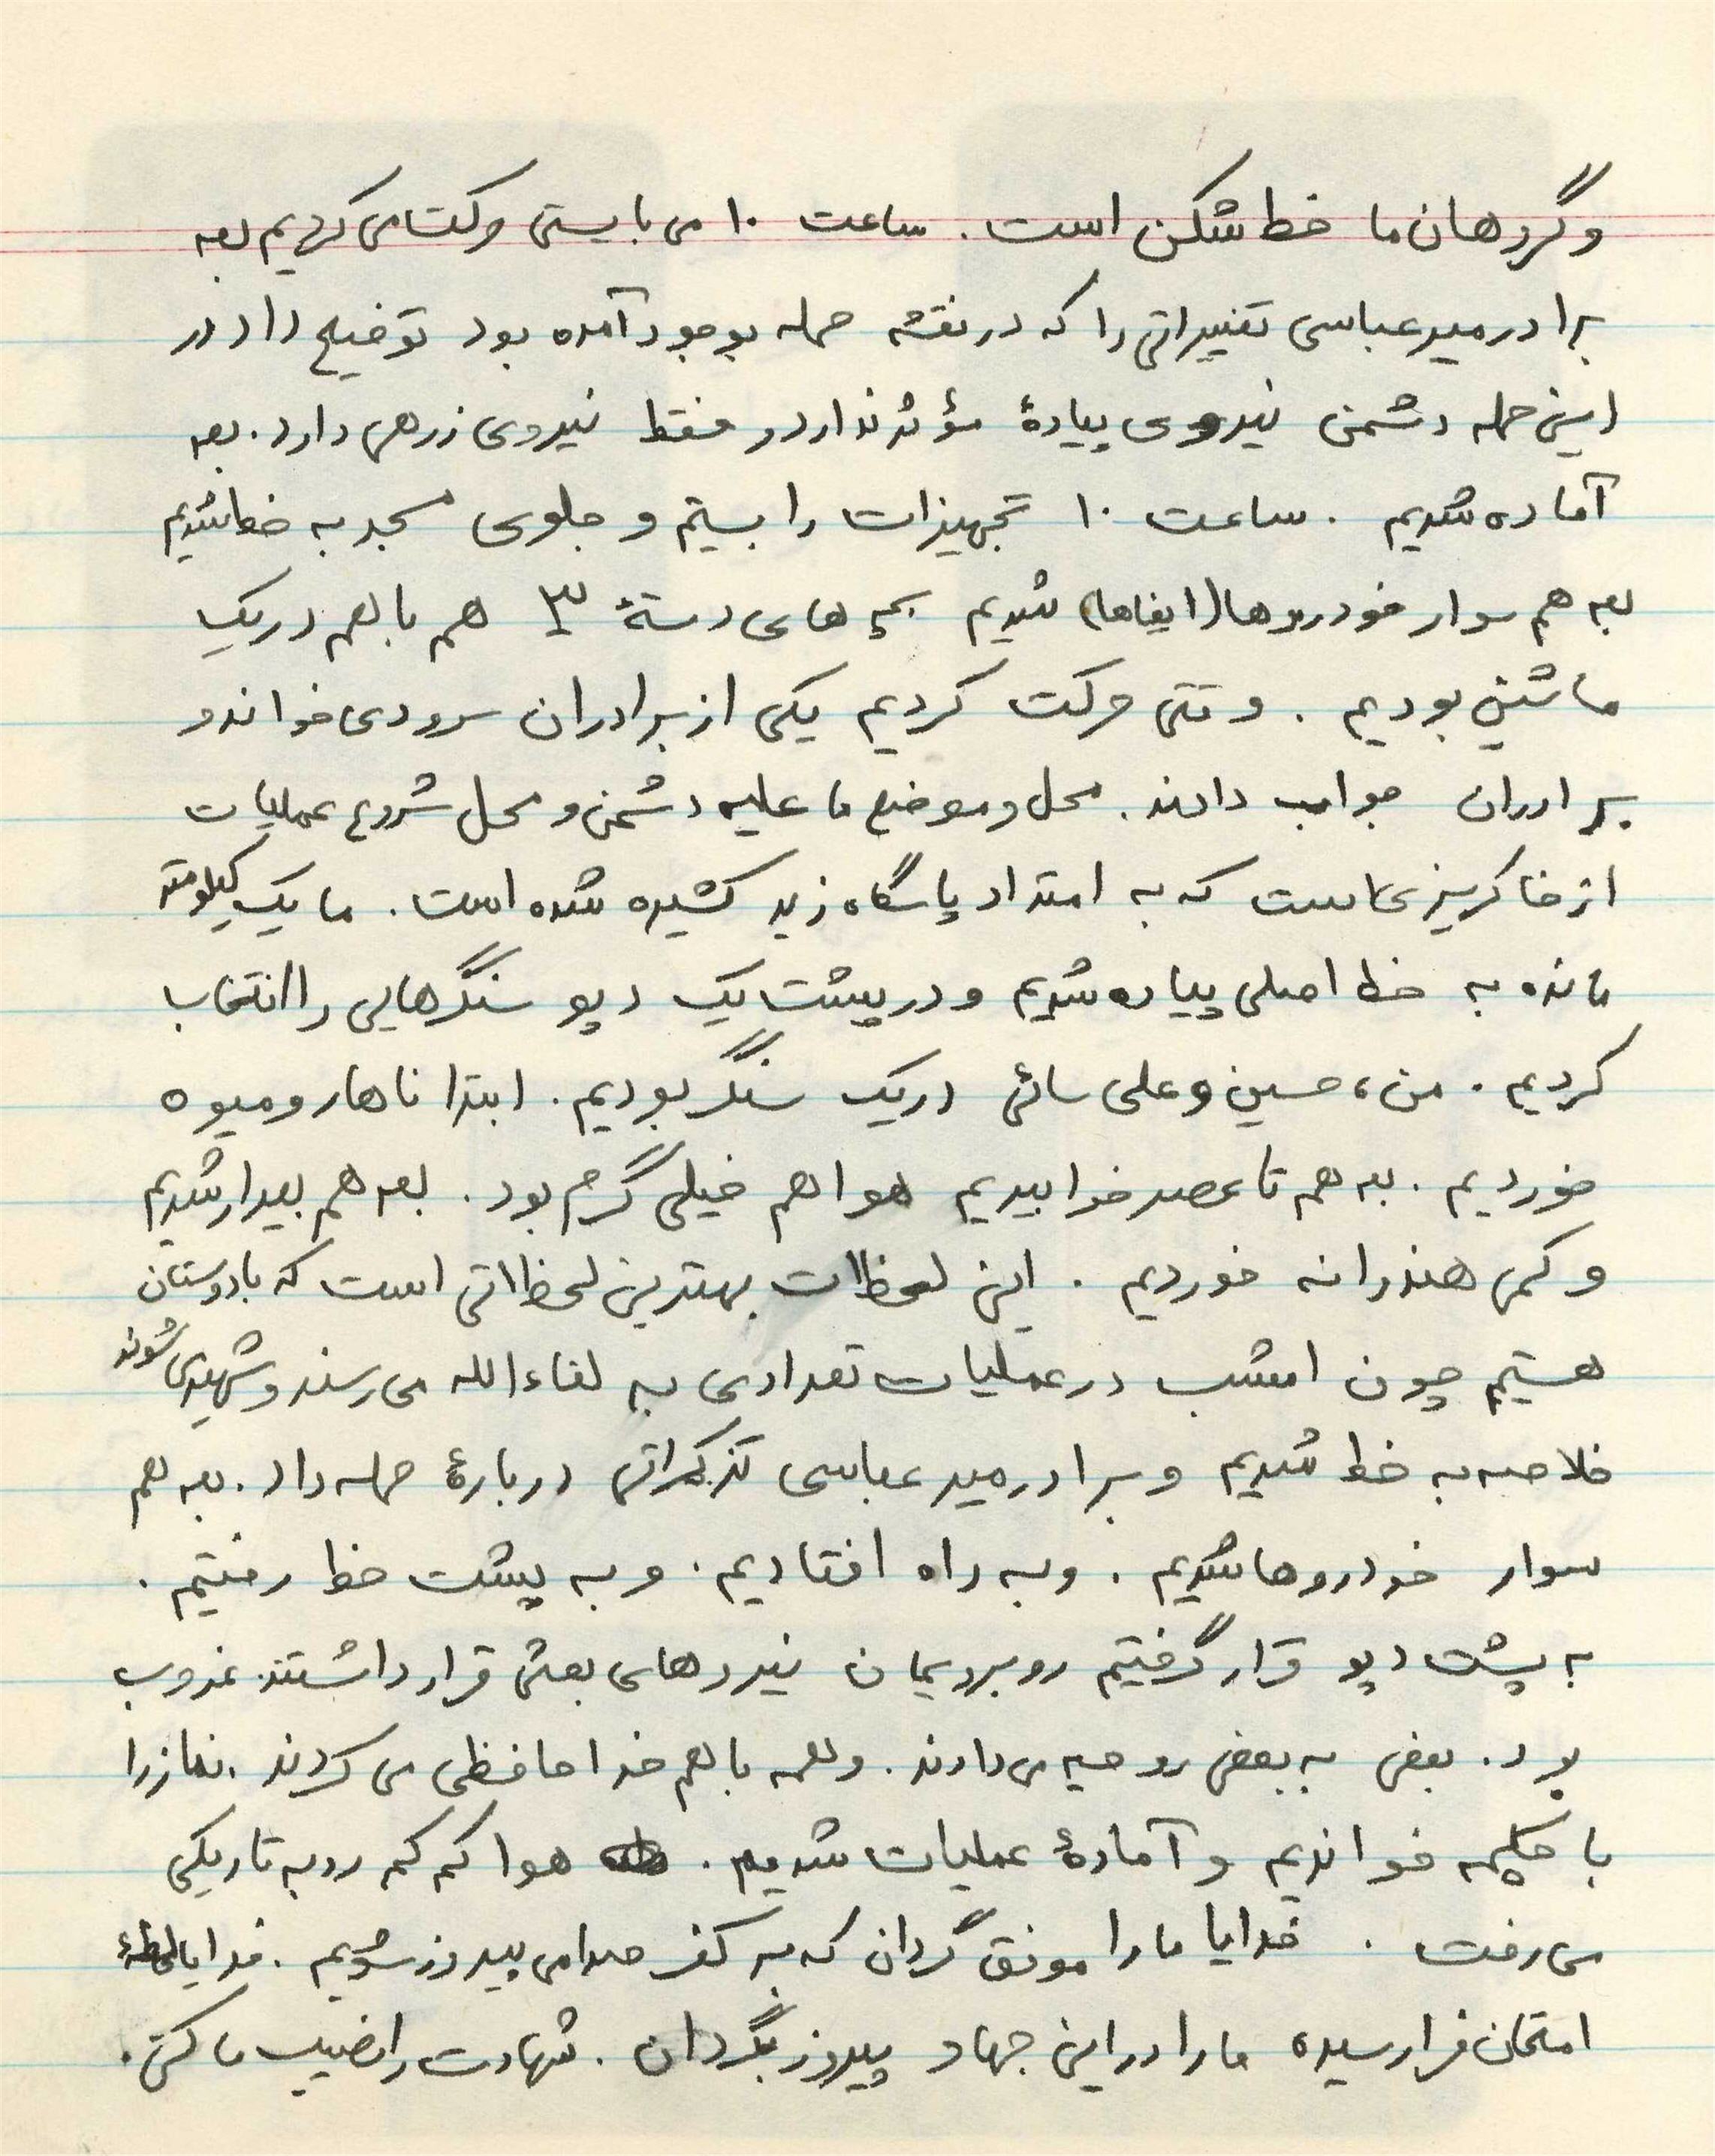 و گردهان ما خط شکن است. ساعت ۱۰ می بایستی حرکت می کردیم بعد
برادر میرعباسی تغییراتی را که در نقشه حمله بوجود آمده بود توضیح داد در
این حمله دشمن نیروی پیادهٔ مؤثر ندارد و فقط نیروی زرهی دارد. بعد
آماده شدیم. ساعت ۱۰ تجهیزات را بستیم و جلوی مسجد به خط شدیم
بعد هم سوار خودروها (ایفاها) شدیم بچه های دستهٔ ۳ هم با هم در یک
ماشین بودیم. وقتی حرکت کردیم یکی از برادران سرودی خواند و
برادران جواب دادند. محل و موضع ما علیه دشمن و محل شروع عملیات
از خاکریزی است که به امتداد پاسگاه زید کشیده شده است. ما یک کیلومتر
مانده به خط اصلی پیاده شدیم و در پشت یک دپو سنگرهایی را انتخاب
کردیم. من، حسین و علی سائی در یک سنگر بودیم. ابتدا ناهار و میوه
خوردیم. بعد هم تا عصر خوابیدیم هوا هم خیلی گرم بود. بعد هم بیدار شدیم
و کمی هندوانه خوردیم. این لحظات بهترین لحظاتی است که با دوستان
هستیم چون امشب در عملیات تعدادی به لقاءالله می رسند و شهید می شوند
خلاصه به خط شدیم و برادر میرعباسی تذکراتی دربارهٔ حمله داد. بعد هم
سوار خودروها شدیم. و به راه افتادیم. و به پشت خط رفتیم.
به پشت دپو قرار گرفتیم روبرویمان نیروهای بعثی قرار داشتند غروب
بود. بعضی به بعضی روحیه می دادند. و همه با هم خداحافظی می کردند. نماز را
با چکمه خواندیم و آمادهٔ عملیات شدیم. هوا کم کم رو به تاریکی
می رفت. خدایا ما را موفق گردان که بر کفر صدامی پیروز شویم. خدایا لحظهٔ
امتحان فرا رسیده ما را در این جهاد پیروز بگردان. شهادت را نصیب ما کن.